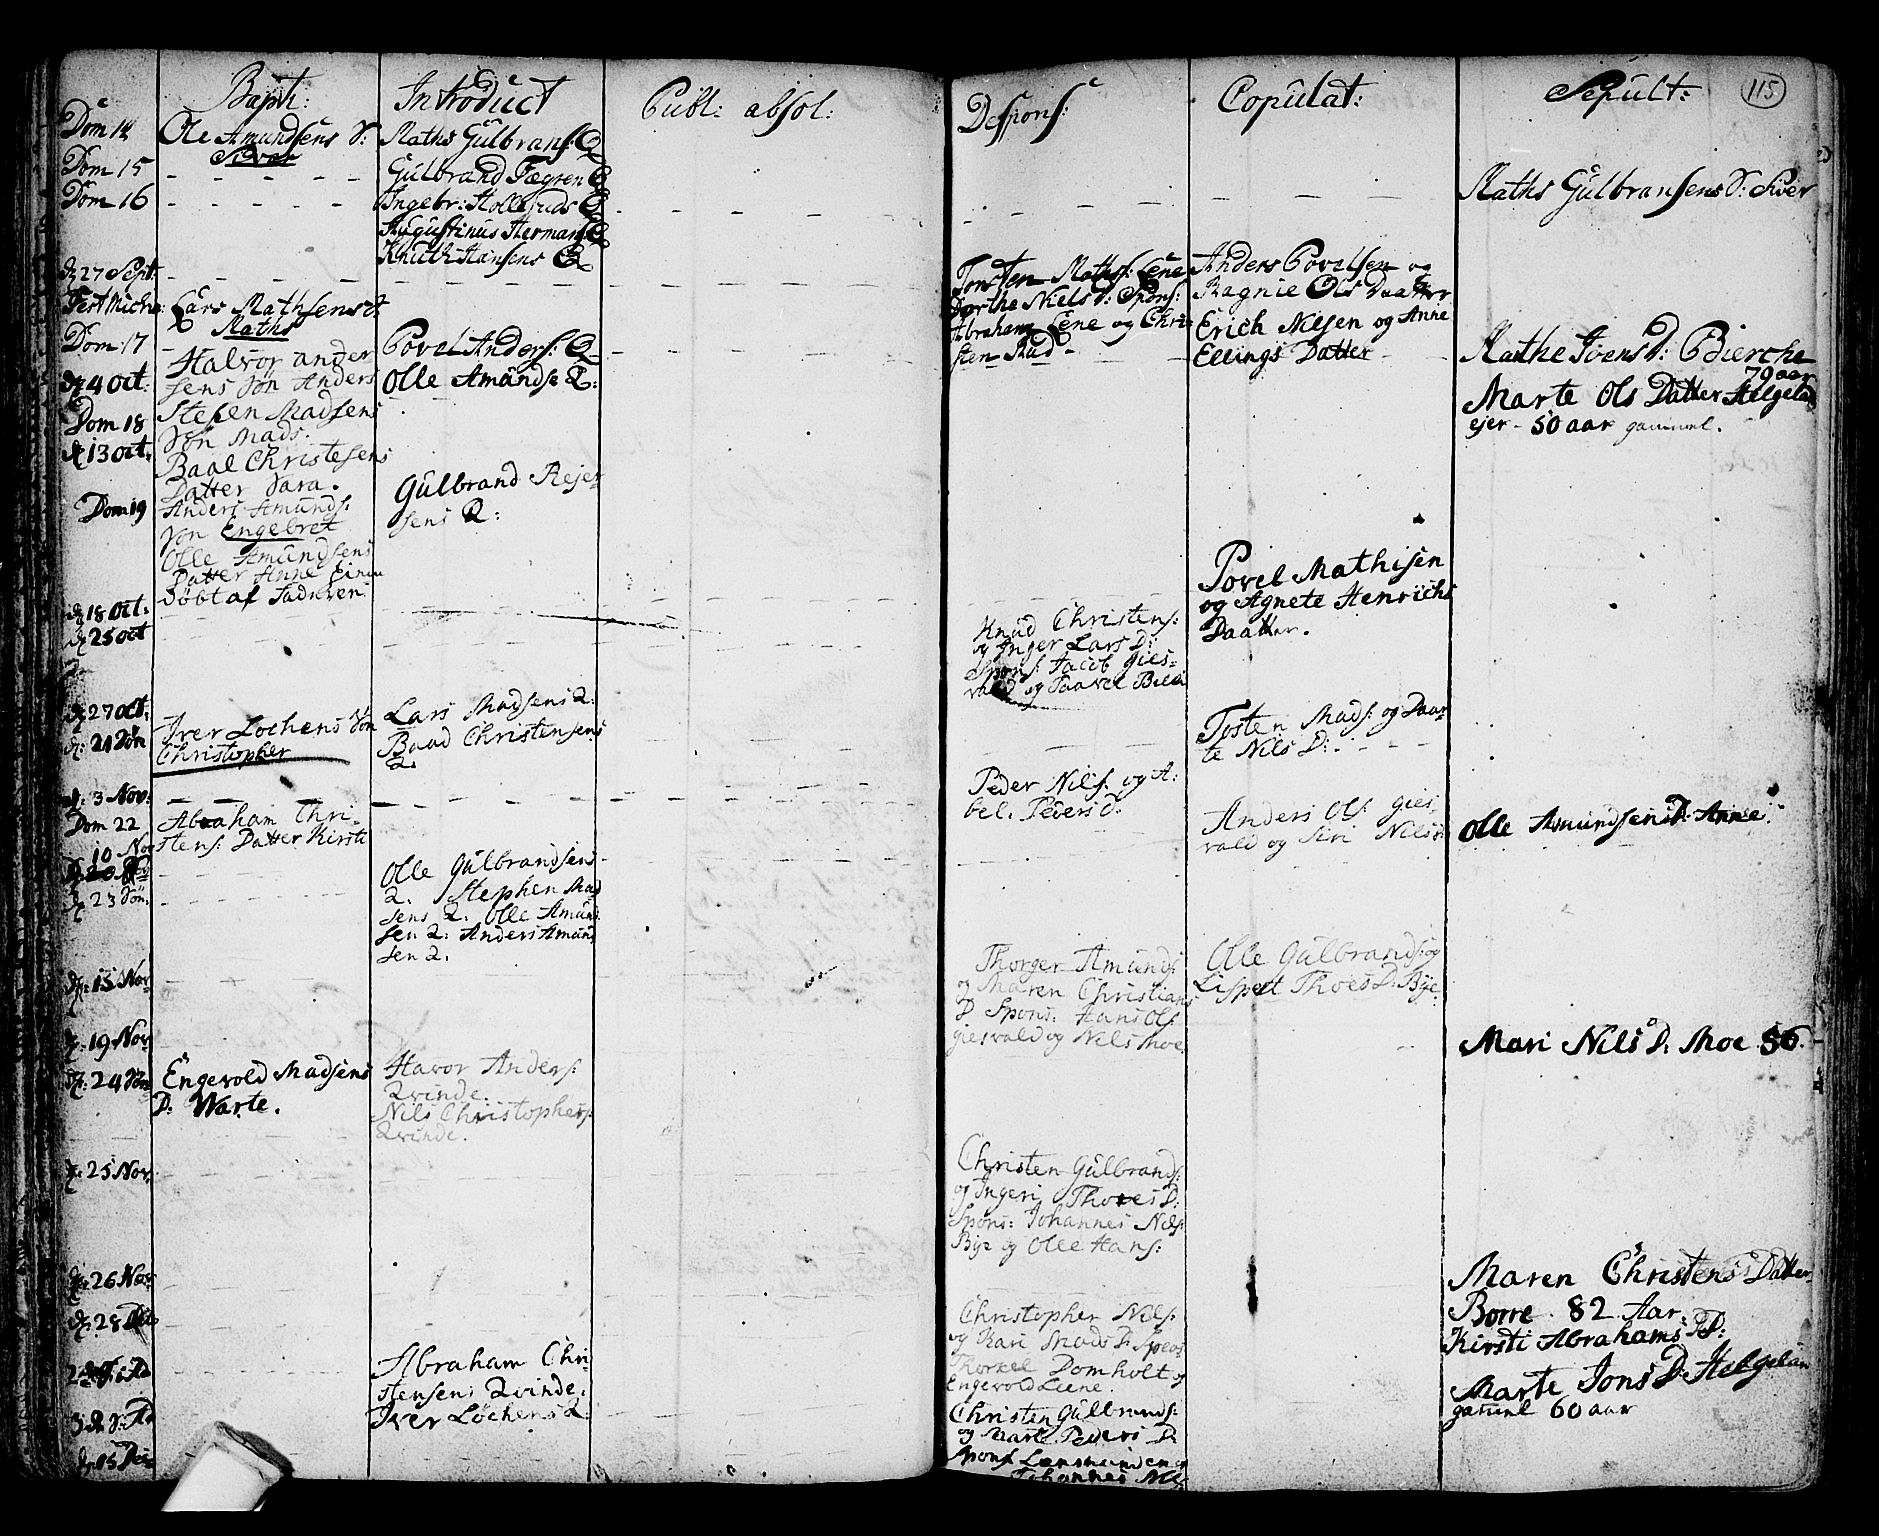 Bapt:
Introduct
Publ: absol:
Despons:
Copulat:
Sepult:
115
Dom 14
Dom 15
Dom 16
27 Sept:
Fest Micha:
Dom: 17
4 Oct:
Dom 18
13 Oct:
Dom 19
18 Oct:
25 Oct
27 Oct:
3 Nov:
Dom 22
10 Nov
23 Søn:
15 Nov
19 Nov
24 Søn
25 Nov.
26 Nov
28
Ole Amundsens S:
Siver
Lars Mathsens S
Maths
Halvor ander
sens Søn Anders
Stefen Madsens
Søn Mads.
Baal Christesens
Datter Sara.
Anders Amunds:
Søn Engebret
Olle Amundsens
Datter Anne
døbt af Faderen
Iver Lochens Søn
Christopher
Abraham Chri-
stens: Datter Kirsti
Engevold Madsens
D: Marte.
Maths Gulbrans: Q
Gulbrand Fægren Q
Ingebr: Holleruds Q
Augustinus Hermans: Q
Knuth Hansens Q
Povel Anders: Q
Olle Amundse Q:
Gulbrand Rejer-
sens Q:
Lars Madsens Q:
Baad Christensens
Q.
Olle Gulbrandsens
Q. Stephen Mad
sens Q. Olle Amund
sen Q: Anders Amund
sen Q.
Havor Anders:
Qvinde.
Nils Christophers:
Qvinde.
Abraham Chri
stensens Qvinde.
Iver Lochens Q.
Torsten Maths: Lene
Dorthe Niels D: Spons:
Abraham Lene og Chri-
sten Rud -
Knud Christens:
og Inger Lars D:
Spons: Jacob Gies-
vald og Paavel
Peder Nils: og A:
bel. Peders D.
Thorger Amunds
og Maren Christians
D Spons: Hans Ols:
giesvald og Nils Moe.
Christen Gulbrands:
og Ingeri Thores D:
Spons: Johannes Nils:
Bye og Olle Hans:
Christopher Nils:
og Kari Mads D: Spons
Thorkel Domholt og
Engevold Liene.
Christen Gulbrands:
og Marte Peders D
Spons
Johannes Nils
Anders Povelsen og
Ragnie Ols Daatter
Erich Nilsen og Anne
Ellings Datter
Povel Mathisen
og Agnete Henrichs
Daatter.
Tosten Mads: og Daar
te Nils D:
Anders Ols: gies
vald og Siri Nils D:
Olle Gulbrands: og
Lispet Thoes D: Bye.
Maths Gulbransens S: Siver
Mathe Ivens D: Bierche
79 aar
Marte Ols Datter Helgeland
ejer - 50 aar gammel.
Olle Amundsens D: Anne
Mari Nils D: Moe 56.
Maren Christens Datter
Borre. 82 Aar.
Kirsti Abrahams D:
Marte Jons D: Helgelan
gamml 60 aar